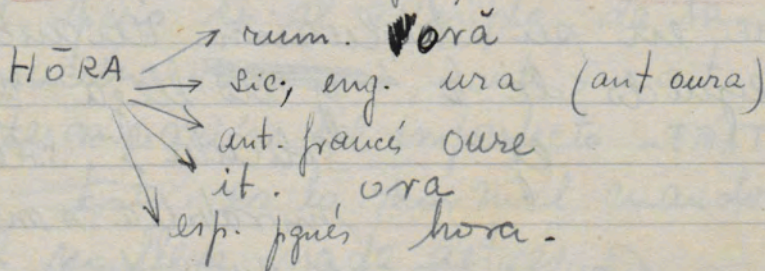 HŌRA → rum. oră
→ sic., eng. ura (ant oura)
→ ant. francés oure
→ it. ora
→ esp. pgués hora.